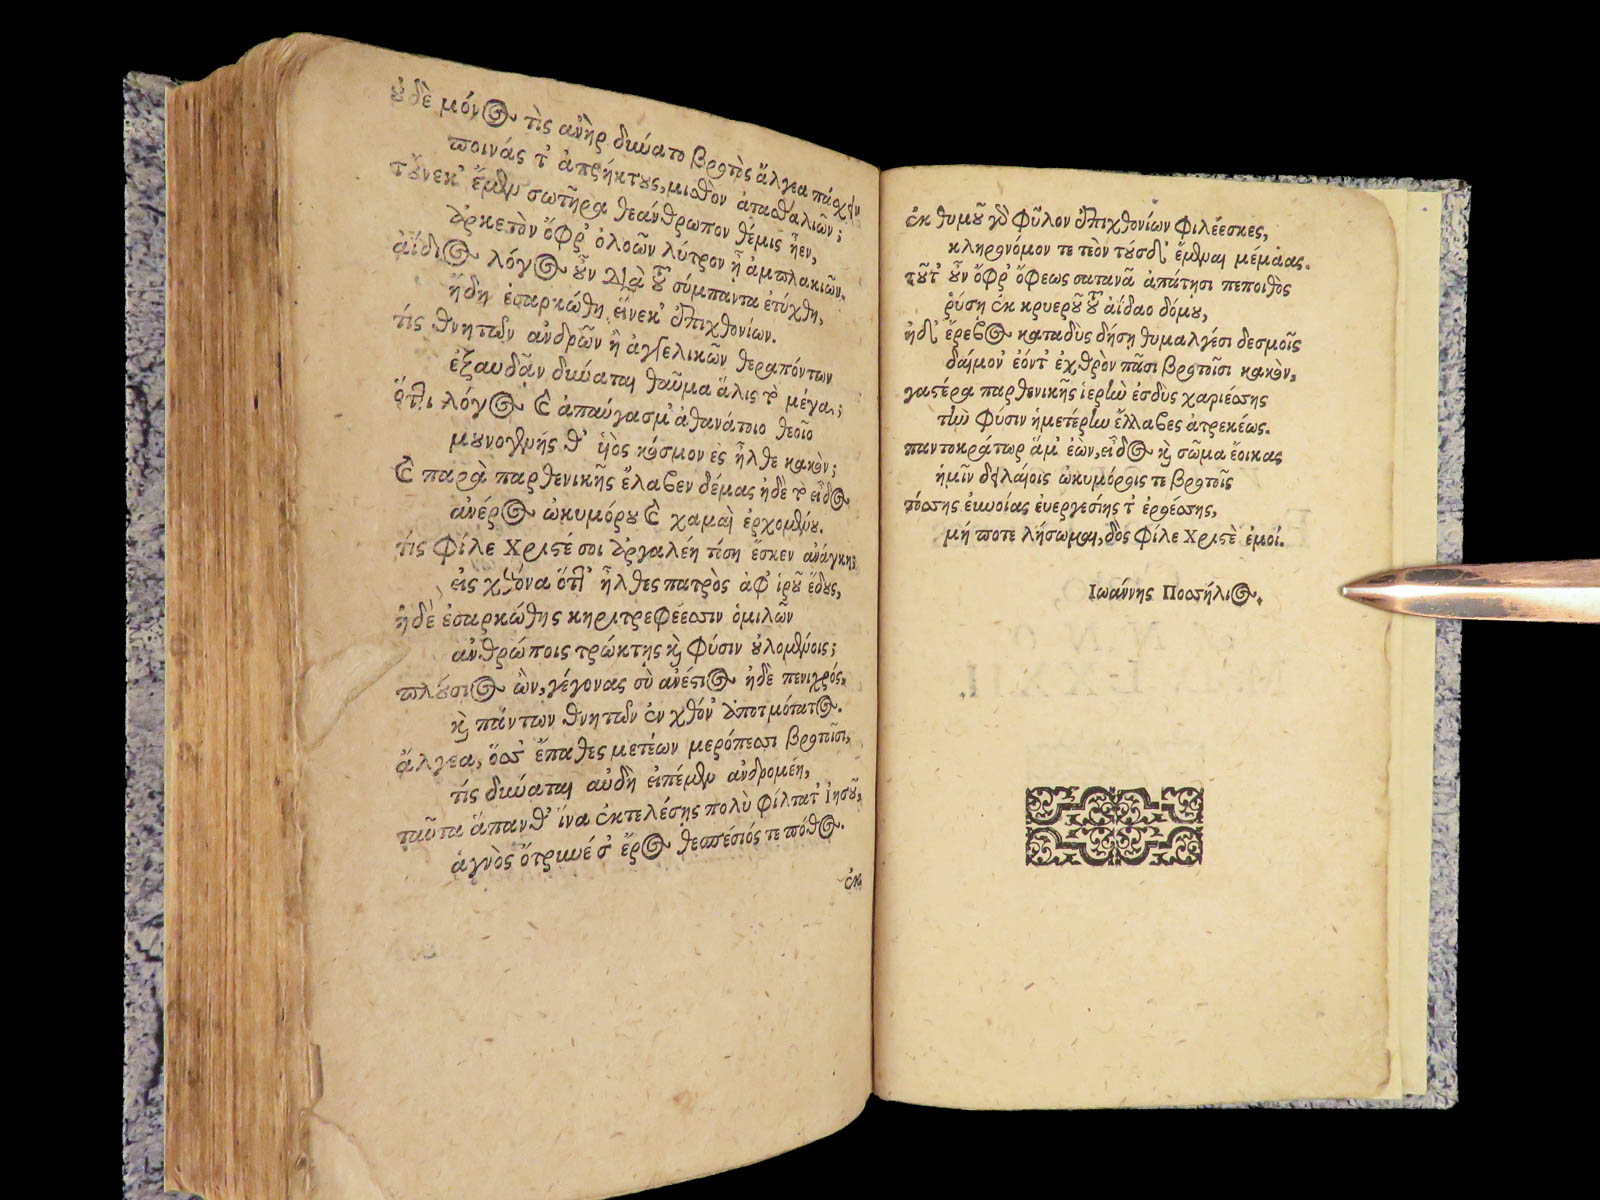 ὐδὲ μόνος τὶς ἀνὴρ δύναιτο βροτὸς ἄλγεα πάσχειν
ποινάς τ' ἀπρήκτους, μισθὸν ἀτασθαλιῶν;
τοὔνεκ' ἔμεν σωτῆρα θεάνθρωπον θέμις ἦεν,
ἀρκετὸν ὄφρ' ὀλοῶν λύτρον ᾖ ἀμπλακιῶν.
ἀΐδιος λόγος οὖν διὰ τοῦ σύμπαντα ἐτύχθη,
ἤδη ἐσαρκώθη εἵνεκ' ἐπιχθονίων.
τίς θνητῶν ἀνδρῶν ἢ ἀγγελικῶν θεραπόντων
ἐξαυδᾶν δύναται θαῦμα ἅλις τὸ μέγα;
ὅτι λόγος καὶ ἀπαύγασμ' ἀθανάτοιο θεοῖο
μουνογενής θ' υἱὸς κόσμον ἐς ἦλθε κακὸν;
καὶ παρὰ παρθενικῆς ἔλαβεν δέμας ἠδὲ τὸ εἶδος
ἀνέρος ὠκυμόρου καὶ χαμαὶ ἐρχομένου.
τίς φίλε Χριστέ σοι ἀργαλέη τόση ἔσκεν ἀνάγκη;
εἰς χθόνα ὅτι ἦλθες πατρὸς ἀφ' ἱροῦ ἕδους,
ἠδέ ἐσαρκώθης κηριτρεφέεσσιν ὁμιλῶν
ἀνθρώποις τρώκτης καὶ φύσιν οὐλομένοις;
πλούσιος ὢν, γέγονας σὺ ἀνέστιος ἠδὲ πενιχρός,
καὶ πάντων θνητῶν ἐν χθόν' ἀποτμότατος.
ἄλγεα, ὅσσ' ἔπαθες μετέων μερόπεσσι βροτοῖσι,
τίς δύναται αὐδὴ εἰπέμεν ἀνδρομέη,
ταῦτα ἅπανθ' ἵνα ἐκτελέσῃς πολὺ φίλτατ' Ἰησοῦ,
ἁγνὸς ὄτρυνέ σ' ἔρος θεσπέσιός τε πόθος.
ἐκ
ἐκ θυμοῦ γὰρ φῦλον ἐπιχθονίων φιλέεσκες,
κληρονόμον τε τεὸν τοῦσδ' ἔμεναι μέμαας.
τοῦτ' οὖν ὄφρ' ὄφεως σατανᾶ ἀπάτῃσι πεποιθὸς
ῥύσῃ ἐκ κρυεροῦ τοῦ ἀΐδαο δόμου,
ἠδ' ἔρεβος καταδὺς δήσῃ θυμαλγέσι δεσμοῖς
δαίμον' ἐόντ' ἐχθρὸν πᾶσι βροτοῖσι κακὸν,
γαστέρα παρθενικῆς ἱερὴν ἐσδὺς χαριέσσης
τὴν φύσιν ἡμετέρην ἔλλαβες ἀτρεκέως.
παντοκράτωρ ἅμ' ἐὼν, εἶδος καὶ σῶμα ἔοικας
ἡμῖν δειλαίοις ὠκυμόροις τε βροτοῖς
τόσσης εὐνοίας εὐεργεσίης τ' ἐρθέσσης,
μή ποτε λήσωμαι, δὸς φίλε Χριστὲ ἐμοί.
Ἰωάννης Ποσσήλιος.